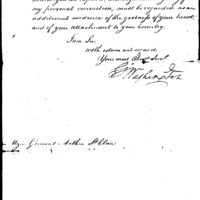 my personal conviction, must be regarded as an
additional evidence of the goodness of your heart,
and of your attachment to your Country.
I am Sir
with esteem and regard
Your most Obedt Servt
G Washington
Major General Arthur St Clair